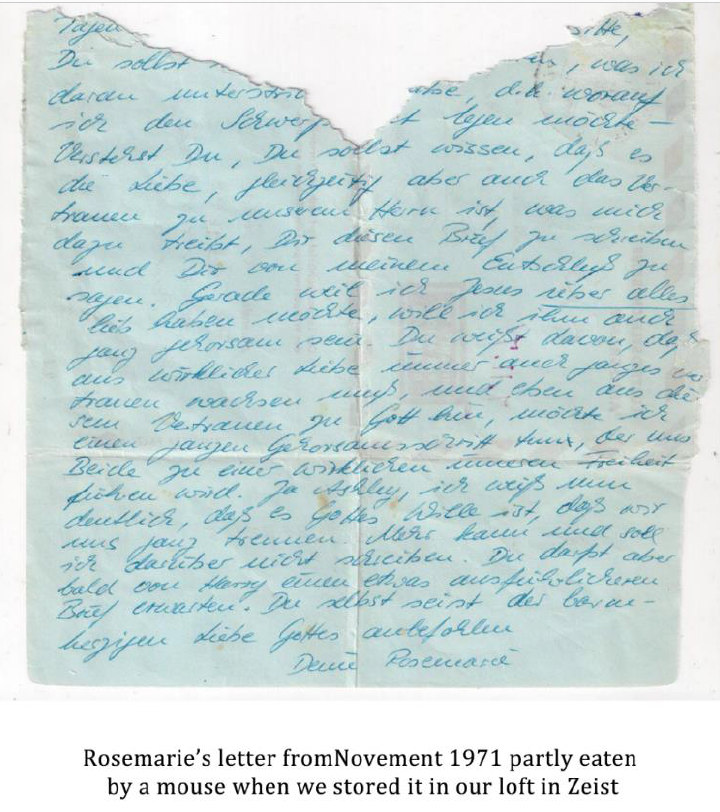 Tagen bitte,
Du sollst , was ich
daran unterstri habe, d.h. worauf
ich den Schwerp t legen möchte –
Verstehst Du, Du sollst wissen, daß es
die Liebe, gleichzeitig aber auch das Ver-
trauen zu unserem Herrn ist, was mich
dazu treibt, Dir diesen Brief zu schreiben
und Dir von meinem Entschluß zu
sagen. Gerade weil ich Jesus über alles
lieb haben möchte, will ich ihm auch
ganz gehorsam sein. Du weißt davon, daß
aus wirklicher Liebe immer auch ganzes Ver
trauen wachsen muß, und eben aus die
sem Vertrauen zu Gott hin, möchte ich
einen ganzen Gehorsamsschritt tun, der uns
Beide zu einer wirklichen inneren Freiheit
führen wird. Ja Ashley, ich weiß nun
deutlich, daß es Gottes Wille ist, daß wir
uns ganz trennen. Mehr kann und soll
ich darüber nicht schreiben. Du darfst aber
bald von Harry einen etwas ausführlicheren
Brief erwarten. Du selbst seist der barm-
herzigen Liebe Gottes anbefohlen
Deine Rosemarie
Rosemarie's letter fromNovement 1971 partly eaten
by a mouse when we stored it in our loft in Zeist